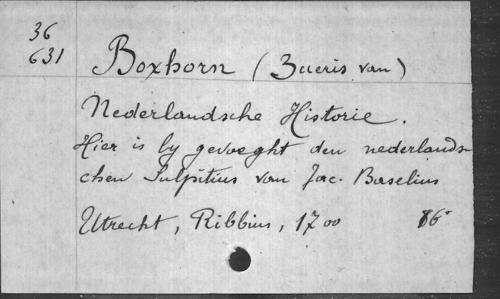 36
631
Boxhorn (Zueris van)
Nederlandsche Historie.
Hier is by gevoeght den nederlands-
chen Sulpitius van Jac. Baselius
Utrecht, Ribbius, 1700 16°